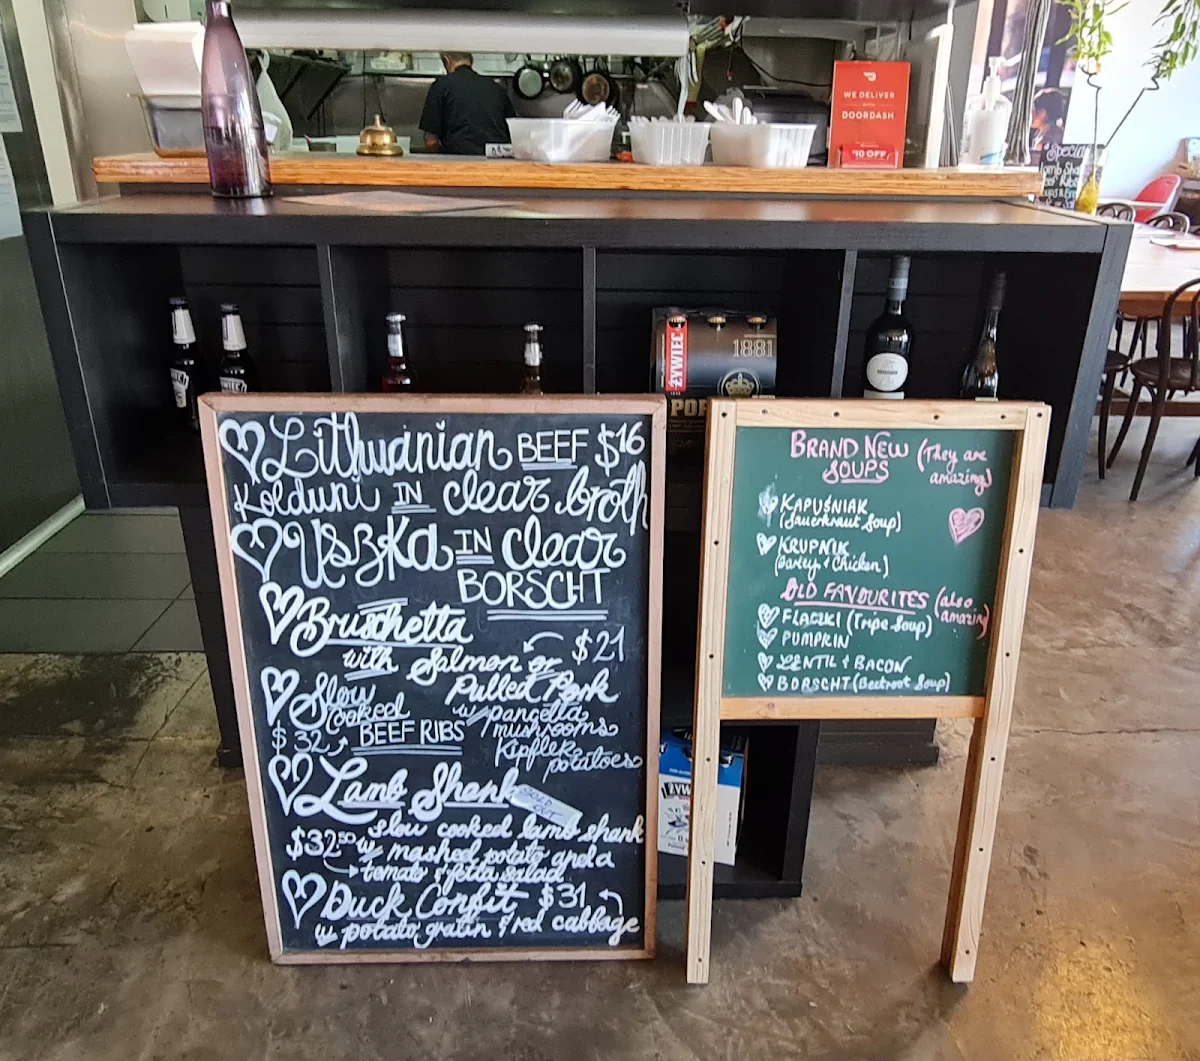 WE DELIVER
WITH
DOORDASH
$10 OFF
Special
Lamb Sha
ŻYWIEC
1881
POR
Lithuanian BEEF $16
Kolduni IN clear broth
Uszka IN clear
BORSCHT
Bruschetta
with Salmon or $21
Pulled Pork
Slow
cooked
$32 BEEF RIBS
w/ pangella
mushrooms
Kipfler
potatoes
Lamb Shank
SOLD
OUT
$32.50 slow cooked lamb shank
w/ mashed potato and a
tomato & fetta salad
Duck Confit $31
w/ potato gratin & red cabbage
BRAND NEW (They are
SOUPS amazing)
KAPUŚNIAK
(Sauerkraut Soup)
KRUPNIK
(Barley & Chicken)
OLD FAVOURITES (also
amazing)
FLACZKI (Tripe Soup)
PUMPKIN
LENTIL & BACON
BORSCHT (Beetroot Soup)
ŻYW